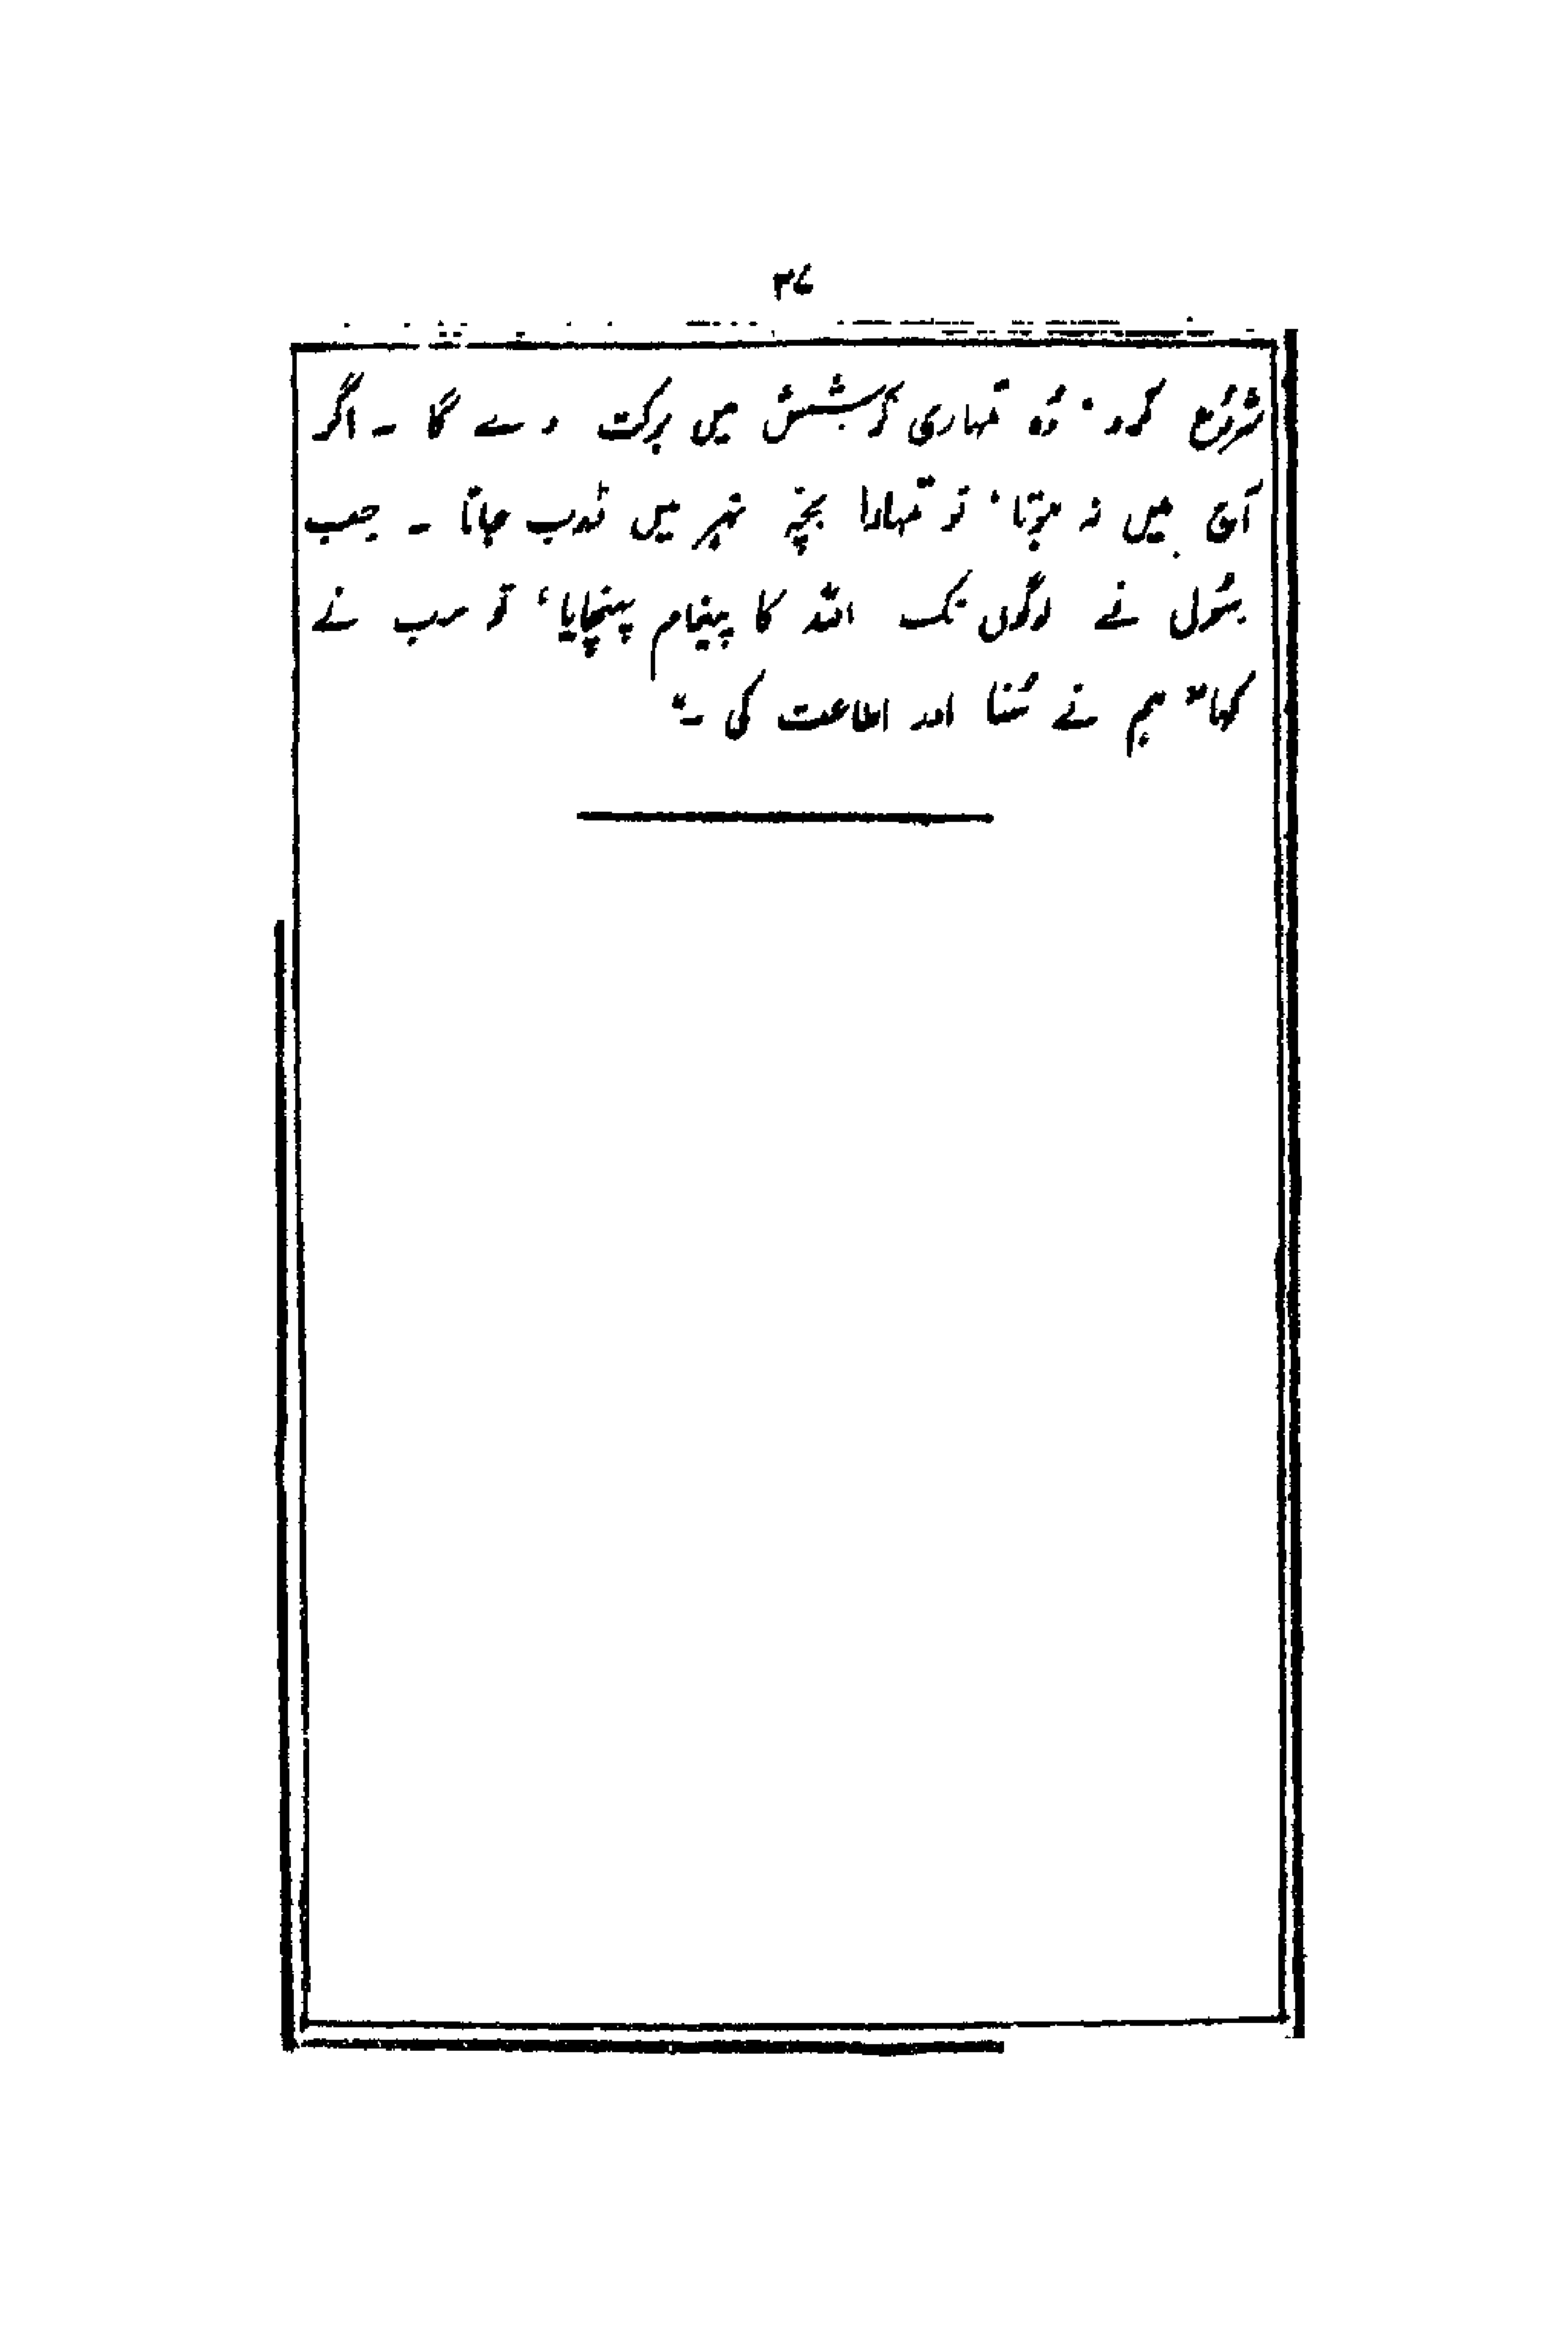 ۳۷
شروُع کرو، وُہ تمہاری کوشش میں برکت دے گا ۔ اگر
آج میں نہ ہوتا، تو تمہارا بچّہ نہر میں ڈوب جاتا ۔ جب
رسُول نے لوگوں تک اللہ کا پیغام پہنچایا، تو سب نے
کہا "ہم نے سُنا اور اطاعت کی ۔"